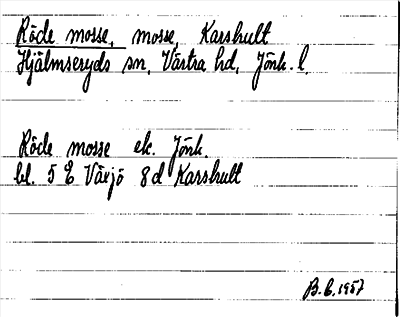 Röde mosse, mosse, Karshult
Hjälmseryds sn, Västra hd, Jönk. l.
Röde mosse ek. Jönk.
bl. 5 E Växjö 8d Karshult
B.C. 1957